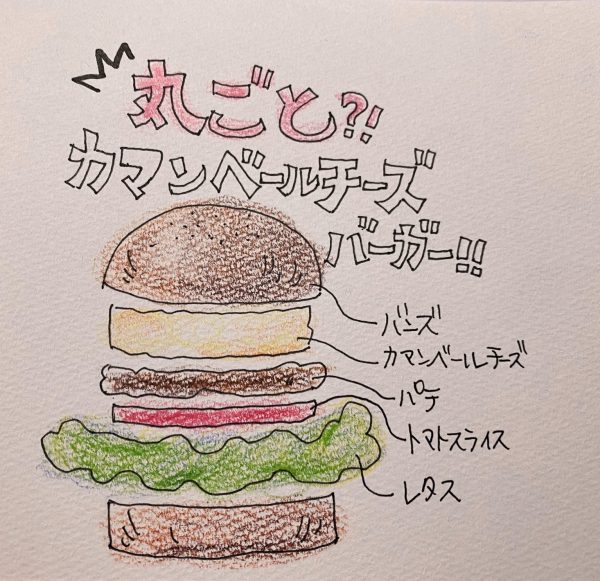 丸ごと?!
カマンベールチーズ
バーガー!!
バンズ
カマンベールチーズ
パテ
トマトスライス
レタス